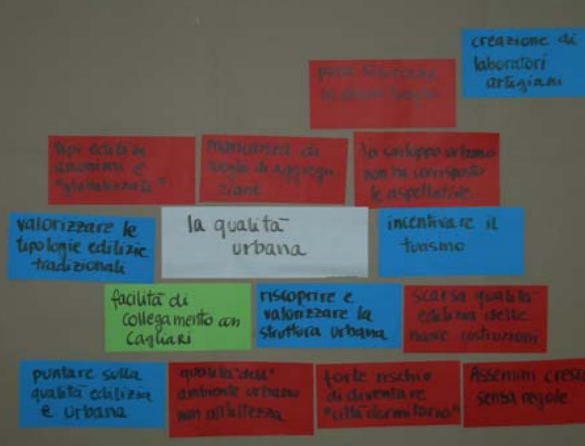 creazione di
laboratori
artigiani
poca
tipi edilizi
anonimi e
"globalizzati"
mancanza di
luoghi di aggrega
zione
lo sviluppo urbano
non ha corrisposto
le aspettative
valorizzare le
tipologie edilizie
tradizionali
la qualità
urbana
incentivare il
turismo
facilità di
collegamento con
Cagliari
riscoprire e
valorizzare la
struttura urbana
scarsa qualità
edilizia delle
nuove costruzioni
puntare sulla
qualità edilizia
e urbana
qualità dell'
ambiente urbano
non all'altezza
forte rischio
di diventare
"città dormitorio"
Assemini cresce
senza regole